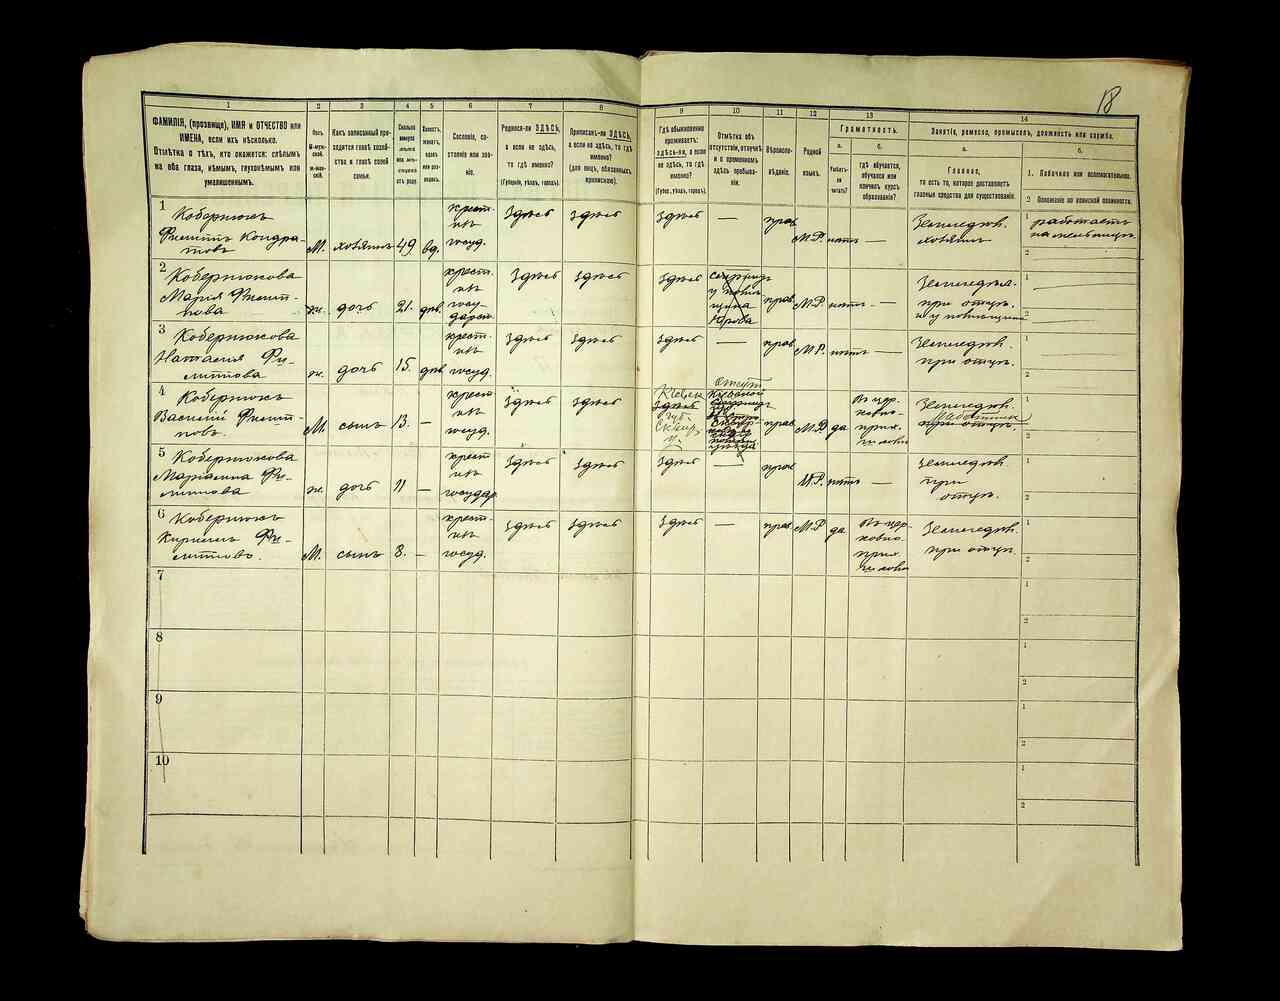 18
1
2
3
4
5
6
7
8
9
10
11
12
13
14
ФАМИЛІЯ, (прозвище), ИМЯ и ОТЧЕСТВО или
ИМЕНА, если ихъ нѣсколько.
Отмѣтка о тѣхъ, кто окажется: слѣпымъ
на оба глаза, нѣмымъ, глухонѣмымъ или
умалишеннымъ.
Полъ.
М-муж-
ской.
Ж-жен-
скій.
Какъ записанный при-
ходится главѣ хозяй-
ства и главѣ своей
семьи.
Сколько
минуло
лѣтъ
или мѣ-
сяцевъ
отъ роду.
Холостъ,
женатъ,
вдовъ
или раз-
веденъ.
Сословіе, со-
стояніе или зва-
ніе.
Родился-ли ЗДѢСЬ,
а если не здѣсь,
то гдѣ именно?
(Губернія, уѣздъ, городъ).
Приписанъ-ли ЗДѢСЬ,
а если не здѣсь, то гдѣ
именно?
(для лицъ, обязанныхъ
припискою).
Гдѣ обыкновенно
проживаетъ:
ЗДѢСЬ-ли, а если
не здѣсь, то гдѣ
именно?
(Губер., уѣздъ, городъ).
Отмѣтка объ
отсутствіи, отлучкѣ
и о временномъ
здѣсь пребыва-
ніи.
Вѣроиспо-
вѣданіе.
Родной
языкъ.
Грамотность.
а.
Умѣетъ-
ли
читать?
б.
гдѣ обучается,
обучался или
кончилъ курсъ
образованія?
Занятіе, ремесло, промыселъ, должность или служба.
а.
Главное,
то есть то, которое доставляетъ
главныя средства для существованія.
б.
1. Побочное или вспомогательное.
2 Положеніе по воинской повинности.
1
Кобернюкъ
Филиппъ Кондра-
товъ
М. хозяинъ 49 вд.
крест-
нъ
госуд.
здѣсь здѣсь здѣсь —
прав. М.Р. нѣтъ —
Земледѣл.
хозяинъ
1 работаетъ
2
2
Кобернюкова
Марія Филип-
пова
ж. дочь 21. дѣв.
крест.
нъ
госу-
дарст.
здѣсь здѣсь здѣсь
прав. М.Р. нѣтъ —
Земледѣл.
при отцѣ.
1
2
3
Кобернюкова
Наталія Фи-
липпова
ж. дочь 15. дѣв.
крест.
нъ
госуд.
здѣсь здѣсь здѣсь —
прав. М.Р. нѣтъ —
Земледѣл.
при отцѣ.
1
2
4
Кобернюкъ
Василій Филип-
повъ.
М. сынъ 13. —
крест
нъ
госуд.
здѣсь здѣсь
Кіевск
здѣсь
губ.
Сквир.
у.
Отсут
прав. М.Р. да
Въ цер.
ковно-
прих.
Земледѣл.
работник
при отцѣ.
1
2
5
Кобернюкова
Маріанна Фи-
липпова
ж. дочь 11 —
крест
нъ
государ.
здѣсь здѣсь здѣсь —
прав. М.Р. нѣтъ —
Земледѣл.
при
отцѣ.
1
2
6
Кобернюкъ
Кирилъ Фи-
липповъ.
М. сынъ 8. —
крест-
нъ
госуд.
здѣсь здѣсь здѣсь —
прав. М.Р. да
Въ цер.
ковно.
прих.
Земледѣл.
при отцѣ.
1
2
7
1
2
8
1
2
9
1
2
10
1
2